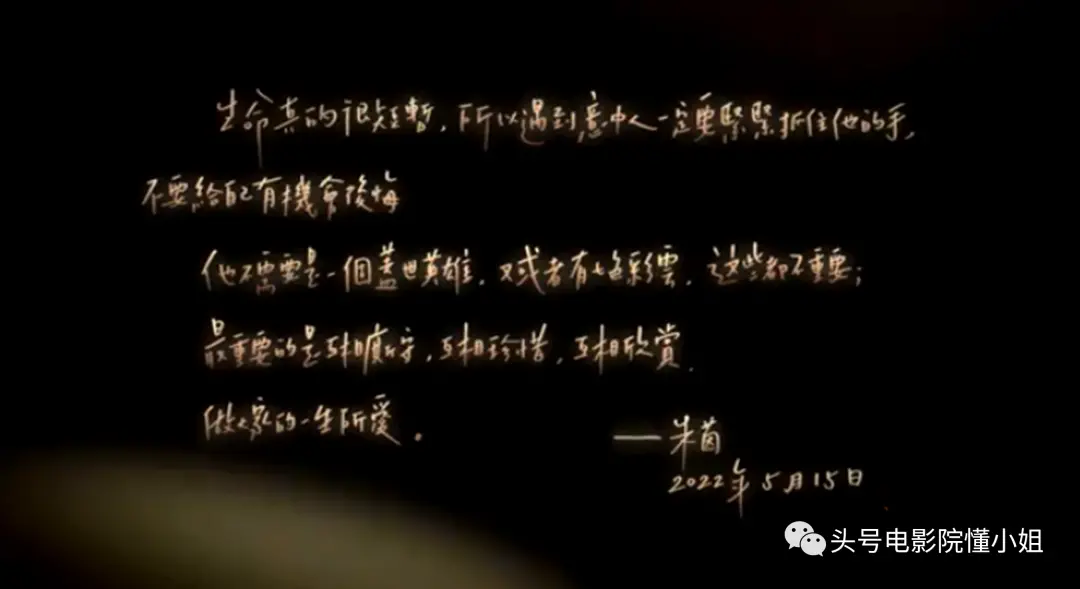 生命真的很短暫，所以遇到意中人一定要緊緊抓住他的手，
不要給自己有機會後悔
他不需要是一個蓋世英雄，又或者有七色彩雲，这些都不重要；
最重要的是互相廝守，互相珍惜，互相欣賞．
做大家的一生所愛．
——朱茵
2022年5月15日
头号电影院懂小姐